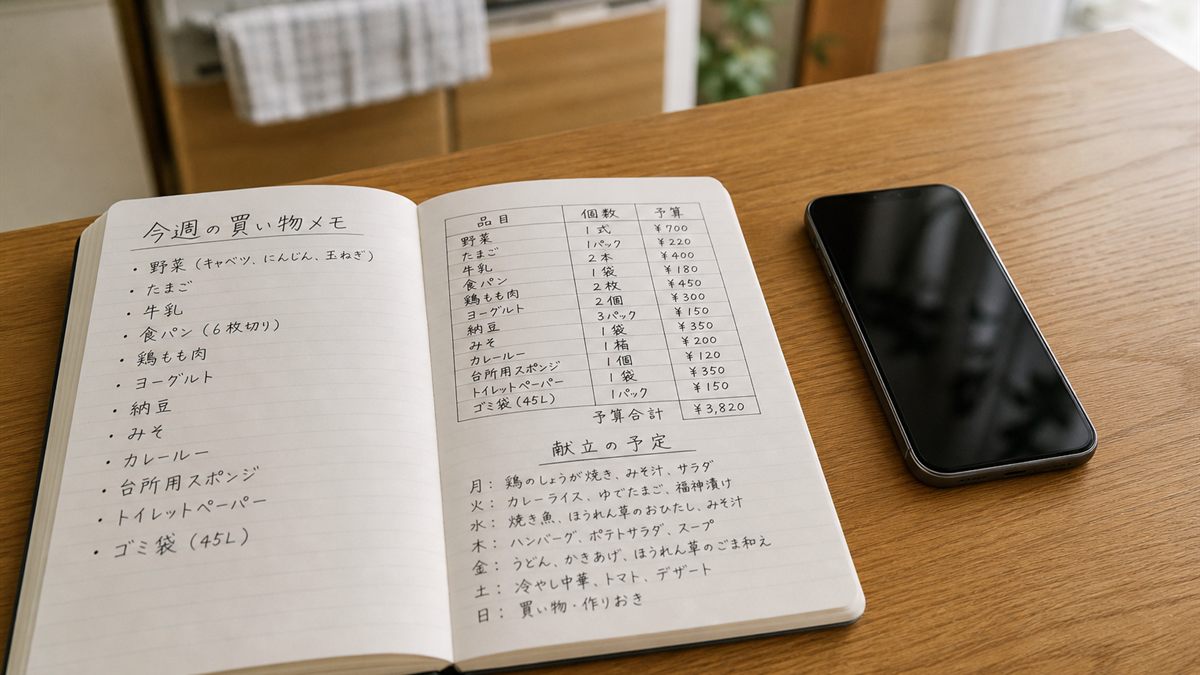 今週の買い物メモ
・野菜（キャベツ、にんじん、玉ねぎ）
・たまご
・牛乳
・食パン（6枚切り）
・鶏もも肉
・ヨーグルト
・納豆
・みそ
・カレールー
・台所用スポンジ
・トイレットペーパー
・ゴミ袋（45L）
品目 個数 予算
野菜 1式 ¥700
たまご 1パック ¥220
牛乳 2本 ¥400
食パン 1袋 ¥180
鶏もも肉 2枚 ¥450
ヨーグルト 2個 ¥300
納豆 3パック ¥150
みそ 1袋 ¥350
カレールー 1箱 ¥200
台所用スポンジ 1個 ¥120
トイレットペーパー 1袋 ¥350
ゴミ袋（45L） 1パック ¥150
予算合計 ¥3,820
献立の予定
月：鶏のしょうが焼き、みそ汁、サラダ
火：カレーライス、ゆでたまご、福神漬け
水：焼き魚、ほうれん草のおひたし、みそ汁
木：ハンバーグ、ポテトサラダ、スープ
金：うどん、かきあげ、ほうれん草のごま和え
土：冷やし中華、トマト、デザート
日：買い物・作りおき